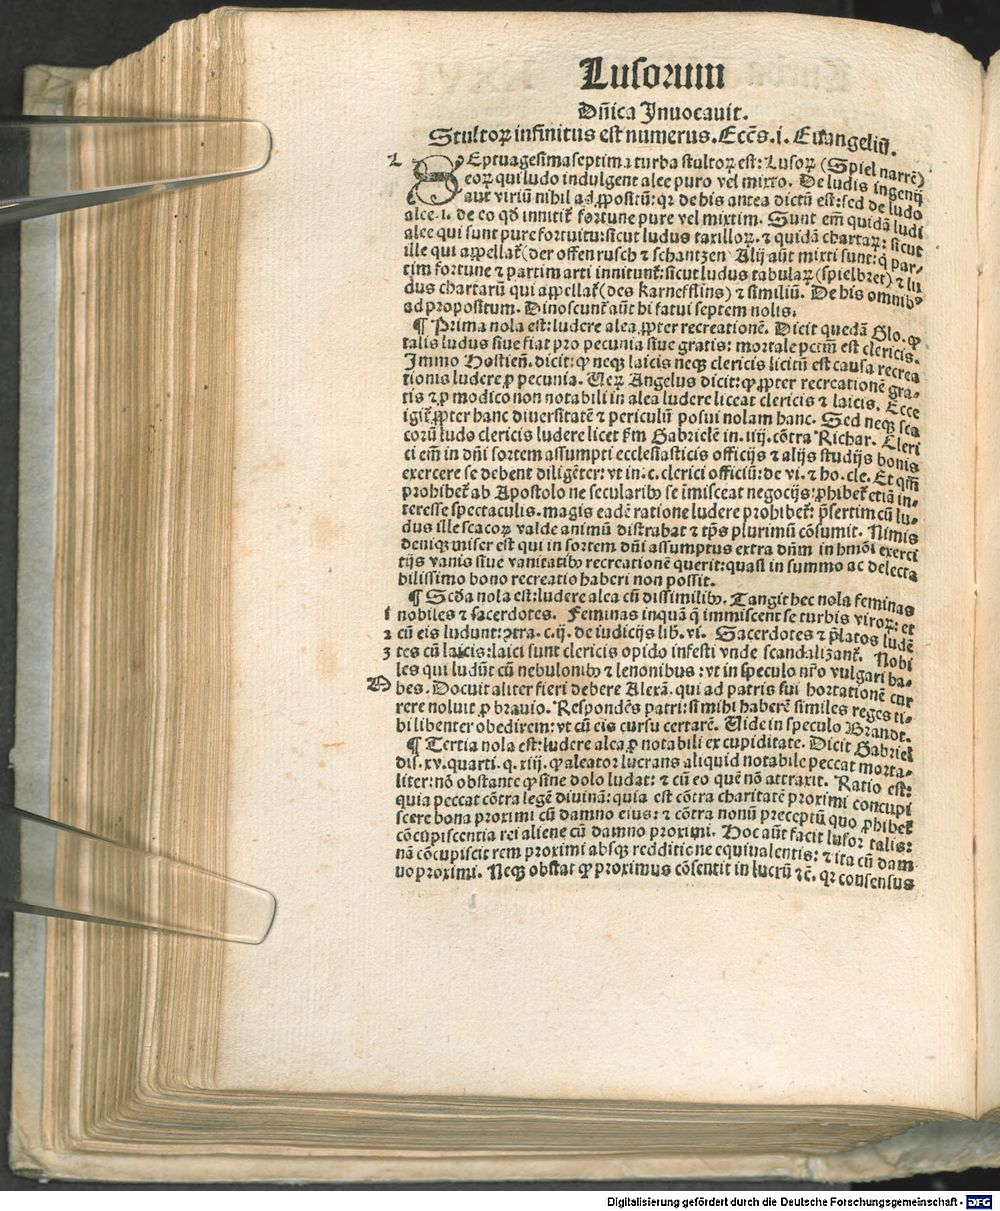 Lusorum
Dn̄ica Inuocauit.
Stultoꝝ infinitus est numerus. Eccēs. i. Euangeliū.
L
SEptuagesimaseptima turba stultoꝝ est: Lusoꝝ (Spiel narrē)
eoꝝ qui ludo indulgent alee puro vel mixto. De ludis ingenij
aut viriū nihil ad ꝓpositū: qꝛ de his antea dictū est: sed de ludo
alee. i. de eo qd̄ innitit᷑ fortune pure vel mixtim. Sunt em̄ quidā ludi
alee qui sunt pure fortuitu: sicut ludus taxilloꝝ. ⁊ quidā chartaꝝ: sicut
ille qui appellat᷑ (der offen rusch ⁊ schantzen) Alij aūt mixti sunt: q̇ par-
tim fortune ⁊ partim arti innitunt᷑: sicut ludus tabulaꝝ (spielbret) ⁊ lu
dus chartarū qui appellat᷑ (des karnefflins) ⁊ similiū. De his omnibꝰ
ad propositum. Dinoscunt᷑ aūt hi fatui septem nolis.
¶ Prima nola est: ludere alea ꝓpter recreationē. Dicit quedā Glo. ꝙ
talis ludus siue fiat pro pecunia siue gratis: mortale pctm̄ est clericis.
Immo Hostien̄. dicit: ꝙ neqꝫ laicis neqꝫ clericis licitū est causa recrea
tionis ludere ꝓ pecunia. Ueꝝ Angelus dicit: ꝙ ꝓpter recreationē gra-
tis ⁊ ꝓ modico non notabili in alea ludere liceat clericis ⁊ laicis. Ecce
igit᷑ ꝓpter hanc diuersitatē ⁊ periculū posui nolam hanc. Sed neqꝫ sca
corū ludo clericis ludere licet fm̄ Gabrielē in. iiij. cōtra Richar. Cleri
ci em̄ in dn̄i sortem assumpti ecclesiasticis officijs ⁊ alijs studijs bonis
exercere se debent diligēter: vt in. c. clerici officiū: de vi. ⁊ ho. cle. Et qm̄
prohibet᷑ ab Apostolo ne secularibꝰ se imisceat negocijs: ꝓhibet᷑ etiā in-
teresse spectaculis. magis eadē ratione ludere prohibet᷑: p̄sertim cū lu-
dus ille scacoꝝ valde animū distrahat ⁊ tp̄s plurimū cōsumit. Nimis
deniqꝫ miser est qui in sortem dn̄i assumptus extra dn̄m in hmōi exerci
tijs vanis siue vanitatibꝰ recreationē querit: quasi in summo ac delecta
bilissimo bono recreatio haberi non possit.
¶ Scd̄a nola est: ludere alea cū dissimilibꝰ. Tangit hec nola feminas
1 nobiles ⁊ sacerdotes. Feminas inquā q̄ immiscent se turbis viroꝝ: et
2 cū eis ludunt: ꝯtra. c. ij. de iudicijs lib. vi. Sacerdotes ⁊ p̄latos ludē
3 tes cū laicis: laici sunt clericis opido infesti vnde scandalizant᷑. Nobi
les qui ludūt cū nebulonibꝰ ⁊ lenonibus: vt in speculo nr̄o vulgari ha-
M bes. Docuit aliter fieri debere Alexā. qui ad patris sui hortationē cur
rere noluit ꝓ brauio. Respondēs patri: si mihi haberē similes reges ti-
bi libenter obedirem: vt cū eis cursu certarē. Uide in speculo Brandt.
¶ Tertia nola est: ludere alea ꝓ notabili ex cupiditate. Dicit Gabriel
dis. xv. quarti. q. xiij. ꝙ aleator lucrans aliquid notabile peccat morta-
liter: nō obstante ꝙ sine dolo ludat: ⁊ cū eo quē nō attraxit. Ratio est:
quia peccat cōtra legē diuinā: quia est cōtra charitatē proximi concupi
scere bona proximi cū damno eius: ⁊ cōtra nonū preceptū quo ꝓhibet᷑
cōcupiscentia rei aliene cū damno proximi. Hoc aūt facit lusor talis:
nā cōcupiscit rem proximi absqꝫ redditione equiualentis: ⁊ ita cū dam
no proximi. Neqꝫ obstat ꝙ proximus cōsentit in lucrū ⁊c̄. qꝛ consensus
Digitalisierung gefördert durch die Deutsche Forschungsgemeinschaft - DFG